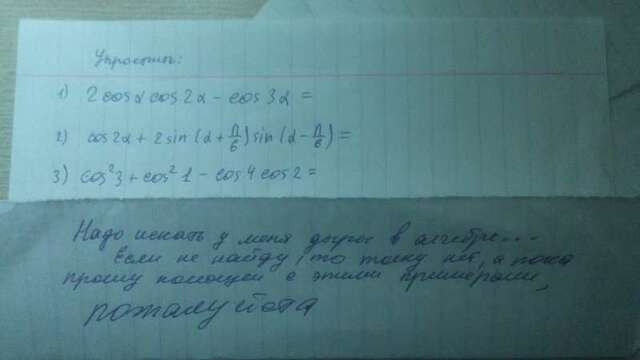 Упростить:
1) 2cosα cos2α - cos3α =
2) cos2α + 2sin(α + π/6) sin(α - π/6) =
3) cos²3 + cos²1 - cos4 cos2 =
Надо искать у меня дыры в алгебре...
Если не найду, то толку нет, а пока
прошу помощи с этими примерами,
пожалуйста